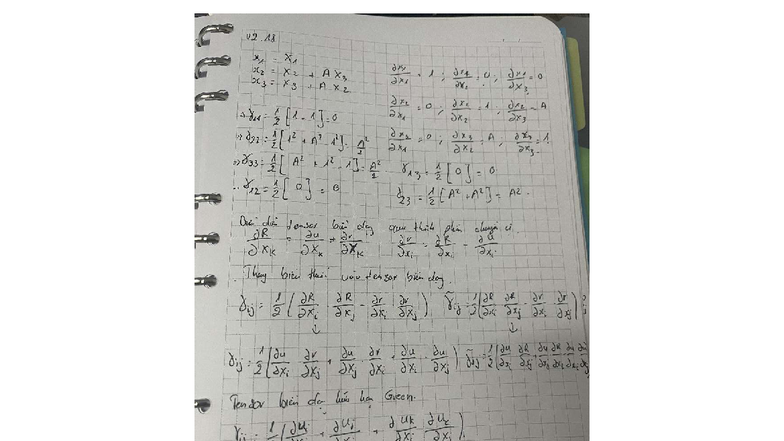 V2.18
x₁ = X₁
x₂ = X₂ + A X₃
x₃ = X₃ + A X₂
∂x₁/∂X₁ = 1 ; ∂x₁/∂X₂ = 0 ; ∂x₁/∂X₃ = 0
∂x₂/∂X₁ = 0 ; ∂x₂/∂X₂ = 1 ; ∂x₂/∂X₃ = A
∂x₃/∂X₁ = 0 ; ∂x₃/∂X₂ = A ; ∂x₃/∂X₃ = 1
γ₁₁ = 1/2 [1 - 1] = 0
γ₂₂ = 1/2 [1² + A² - 1²] = A²/2
γ₃₃ = 1/2 [A² + 1² - 1] = A²/2
γ₁₃ = 1/2 [0] = 0
γ₁₂ = 1/2 [0] = 0
γ₂₃ = 1/2 [A² + A²] = A²
tensor biến dạng qua thành phần chuyển vị
∂R/∂Xₖ = ∂u/∂Xₖ + ∂r/∂Xₖ
∂r/∂xᵢ = ∂R/∂xᵢ - ∂u/∂xᵢ
Thay biểu thức vào tensor biến dạng
γᵢⱼ = 1/2 (∂R/∂Xᵢ ∂R/∂Xⱼ - ∂r/∂Xᵢ ∂r/∂Xⱼ)
γ̃ᵢⱼ = 1/2 (∂R/∂xᵢ ∂R/∂xⱼ - ∂r/∂xᵢ ∂r/∂xⱼ)
↓ ↓
γᵢⱼ = 1/2 (∂u/∂Xᵢ ∂r/∂Xⱼ + ∂u/∂Xⱼ ∂r/∂Xᵢ + ∂u/∂Xᵢ ∂u/∂Xⱼ)
Tensor biến dạng hữu hạn Green
γᵢⱼ = 1/2 (∂uᵢ + ∂uⱼ/∂Xᵢ + ∂uₖ/∂Xᵢ